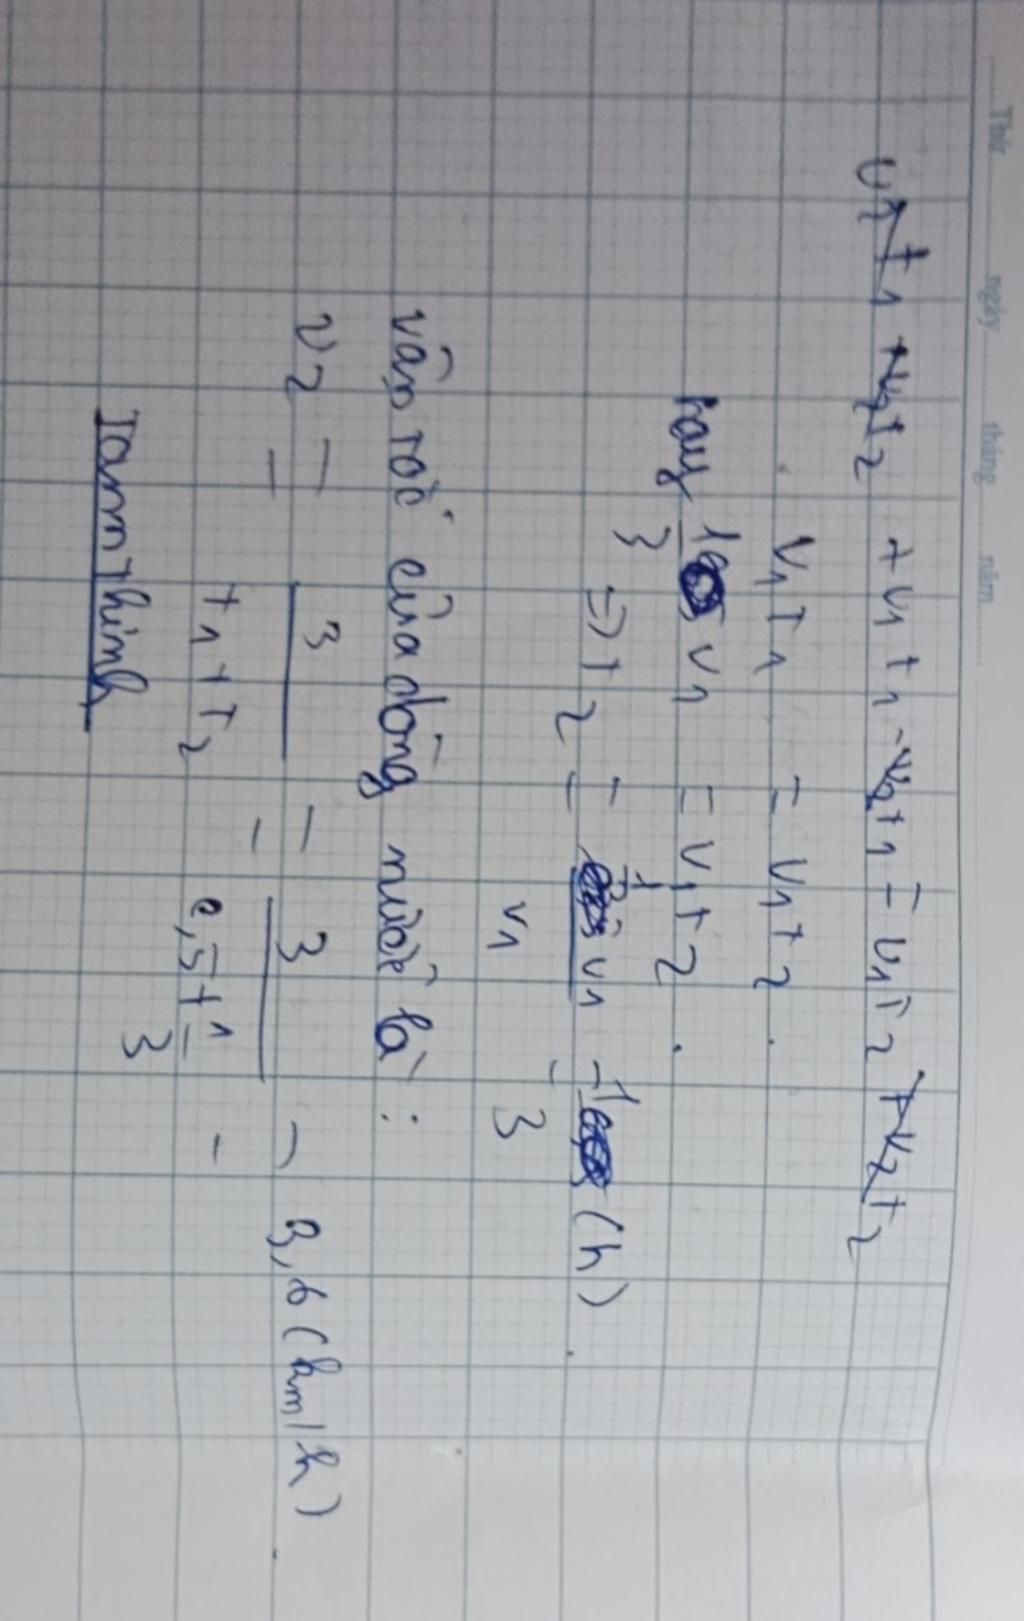 Thứ ngày tháng năm
v₁t₁ + v₂t₂ + v₁t₁ - v₂t₁ = v₁t₂ + v₂t₂
v₁t₁ = v₁t₂.
hay 1/3 v₁ = v₁t₂.
=> t₂ = 1/3 v₁ / v₁ = 1/3 (h).
vân tốc của dòng nước là :
v₂ = 3 / t₁ + t₂ = 3 / 0,5 + 1/3 = 3,6 (km/h).